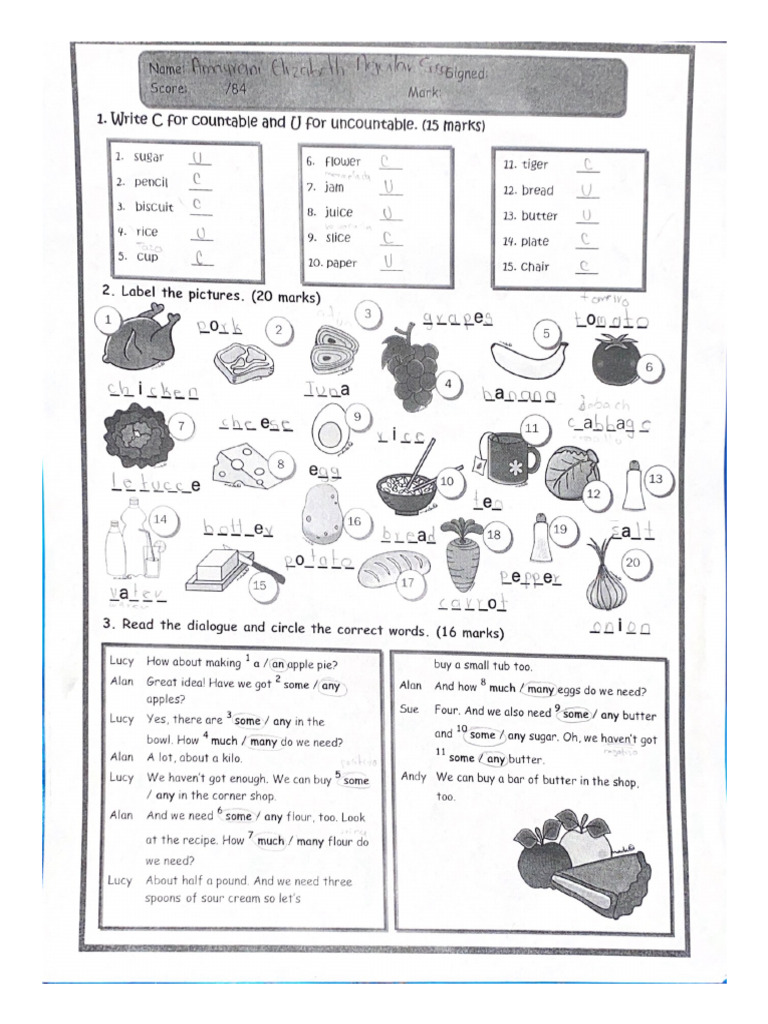 Name: Elizabeth Signed:
Score: /84 Mark:
1. Write C for countable and U for uncountable. (15 marks)
1. sugar U
2. pencil C
3. biscuit C
4. rice U
Taza
5. cup C
6. flower C
7. jam U
8. juice U
9. slice C
10. paper U
11. tiger C
12. bread U
13. butter U
14. plate C
15. Chair C
2. Label the pictures. (20 marks)
1 pork 2 3 grapes 5 tomato
chicken Tuna 4 banana 6
7 cheese 9 rice 11 cabbage
letucce 8 egg 10 tea 12 13
14 butter 16 bread 18 19 salt
water 15 potato 17 carrot pepper 20
onion
3. Read the dialogue and circle the correct words. (16 marks)
Lucy How about making 1 a / an apple pie?
Alan Great idea! Have we got 2 some / any
apples?
Lucy Yes, there are 3 some / any in the
bowl. How 4 much / many do we need?
Alan A lot, about a kilo.
Lucy We haven't got enough. We can buy 5 some
/ any in the corner shop.
Alan And we need 6 some / any flour, too. Look
at the recipe. How 7 much / many flour do
we need?
Lucy About half a pound. And we need three
spoons of sour cream so let's
buy a small tub too.
Alan And how 8 much / many eggs do we need?
Sue Four. And we also need 9 some / any butter
and 10 some / any sugar. Oh, we haven't got
11 some / any butter.
Andy We can buy a bar of butter in the shop,
too.